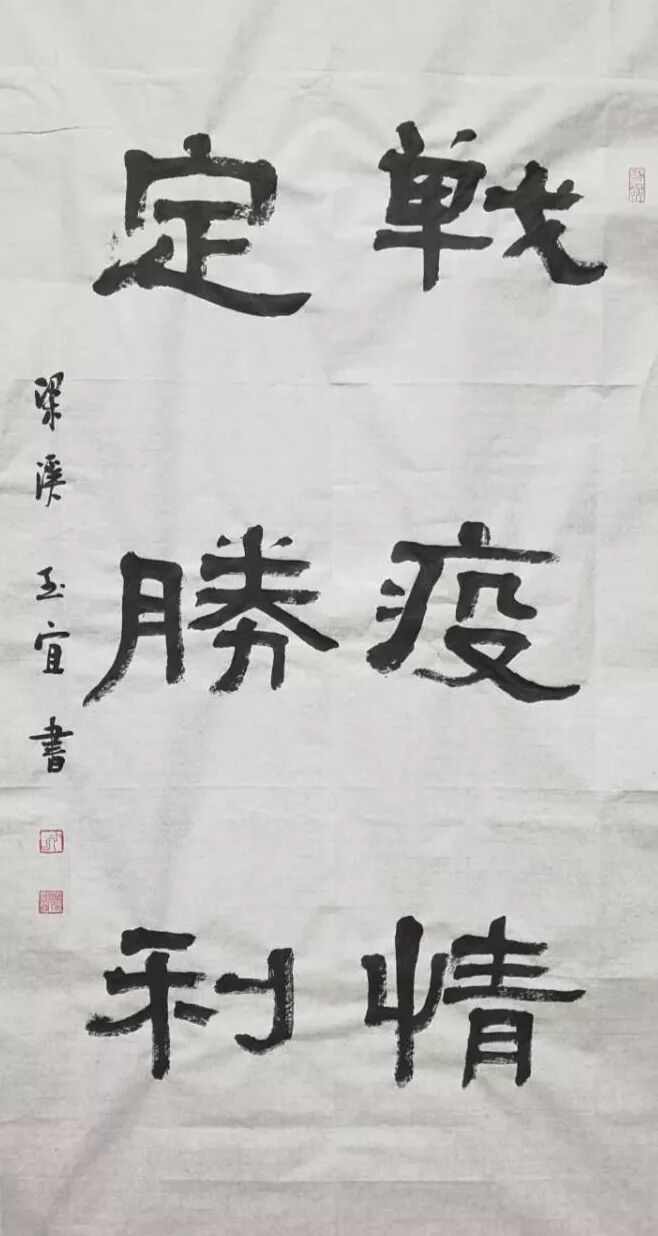 戦疫情
定勝利
梁溪玉宜書